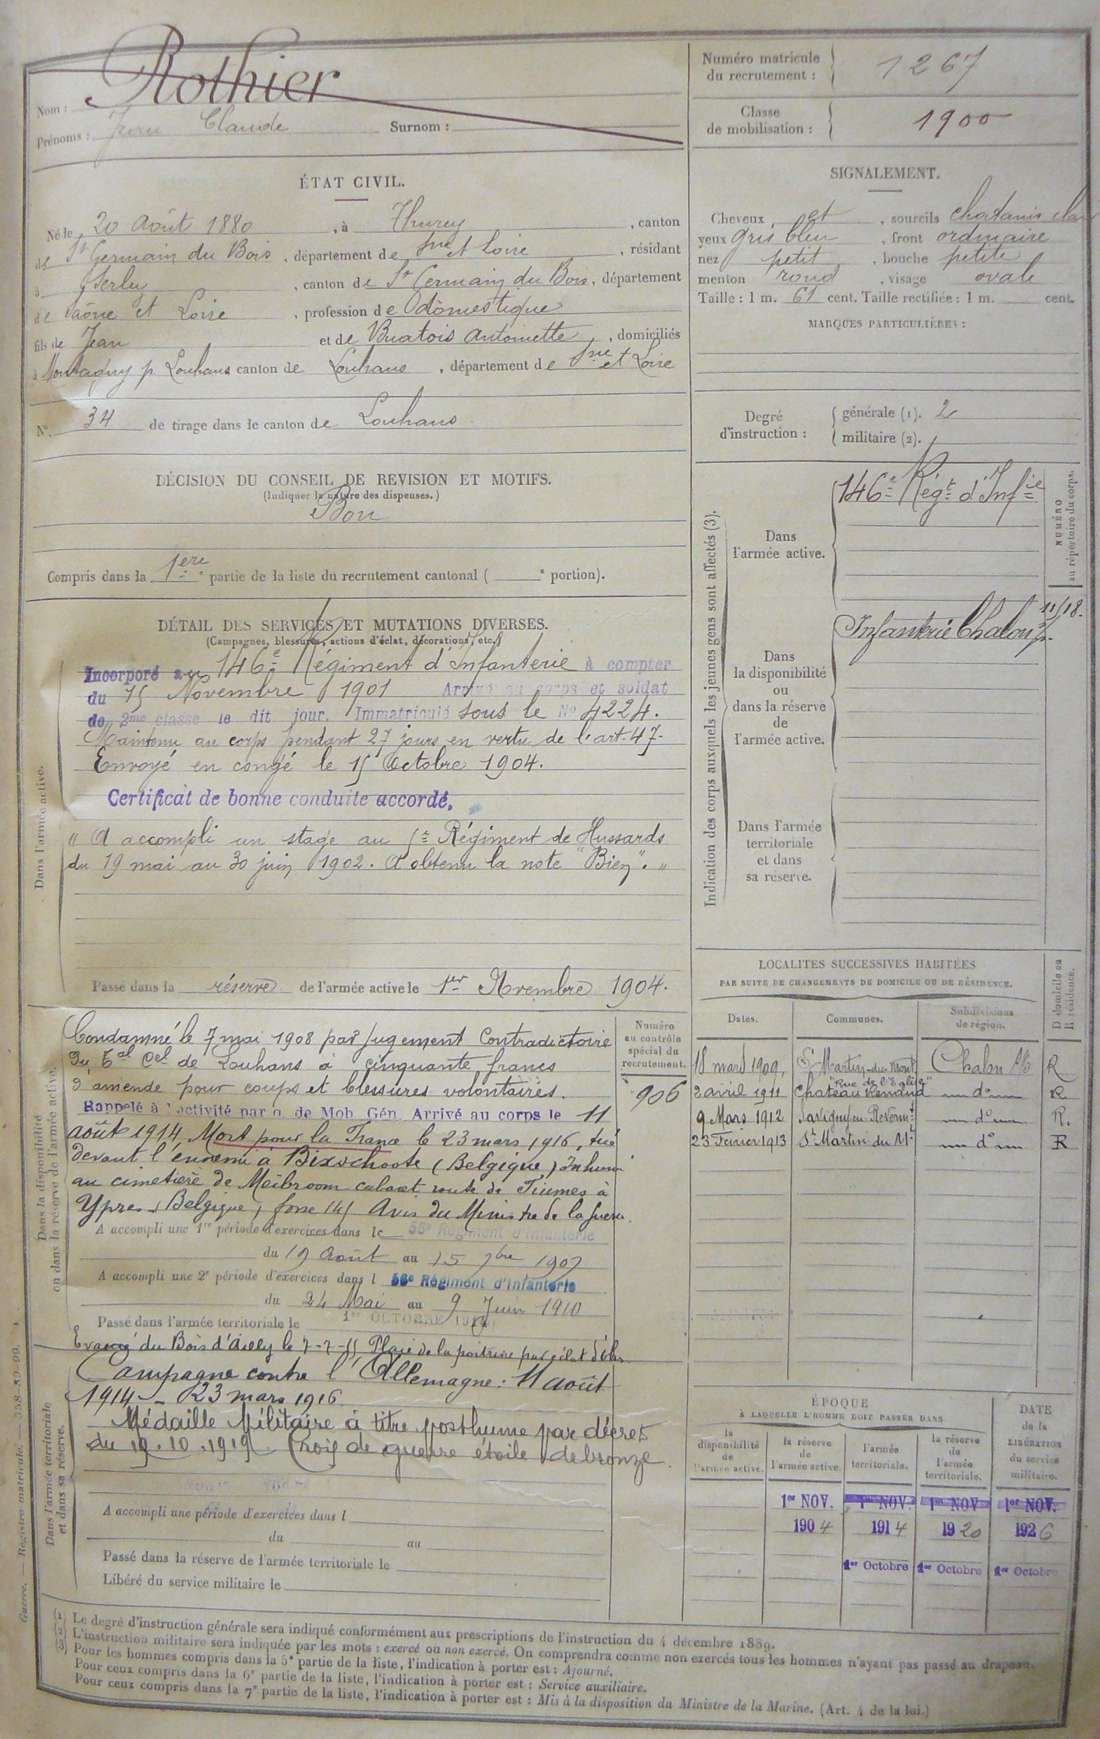 Nom : Rothier
Prénoms : Jean Claude Surnom :
ÉTAT CIVIL.
Né le 20 Août 1880, à Thurey, canton
de St Germain du Bois, département de Sne et Loire, résidant
à Serley, canton de St Germain du Bois, département
de Saône et Loire, profession de domestique
fils de Jean et de Buatois Antoinette, domiciliés
à Montagny p. Louhans canton de Louhans, département de Sne et Loire
N° 34 de tirage dans le canton de Louhans.
DÉCISION DU CONSEIL DE REVISION ET MOTIFS.
(Indiquer la nature des dispenses.)
Bon
Compris dans la 1ère partie de la liste du recrutement cantonal ( e portion).
DÉTAIL DES SERVICES ET MUTATIONS DIVERSES.
(Campagnes, blessures, actions d'éclat, décorations, etc.)
Dans l'armée active.
Incorporé au 146e Régiment d'Infanterie à compter
du 15 Novembre 1901 Arrivé au corps et soldat
de 2me classe le dit jour. Immatriculé sous le No 4224.
Maintenu au corps pendant 27 jours en vertu de l'art. 47.
Envoyé en congé le 15 Octobre 1904.
Certificat de bonne conduite accordé.
" A accompli un stage au Régiment de Hussards
du 19 mai au 30 juin 1902. A obtenu la note "Bien". "
Passé dans la réserve de l'armée active le 1er Novembre 1904.
Dans la disponibilité
ou dans la réserve de l'armée active.
Condamné le 7 mai 1908 par jugement Contradictoire
du Tal Cel de Louhans à cinquante francs
d'amende pour coups et blessures volontaires.
Rappelé à l'activité par o. de Mob. Gén. Arrivé au corps le 11
août 1914. Mort pour la France le 23 mars 1916, tué
devant l'ennemi à Bixschoote (Belgique) Inhumé
au cimetière de Meibroom cabaret route de à
Ypres (Belgique) fosse 141 Avis du Ministre de la Guerre.
A accompli une 1re période d'exercices dans le 56e Régiment d'Infanterie
du 19 Août au 15 7bre 1907
A accompli une 2e période d'exercices dans l 56e Régiment d'Infanterie
du 24 Mai au 9 Juin 1910
Passé dans l'armée territoriale le 1er OCTOBRE
Numéro
au contrôle
spécial du
recrutement.
906
Dans l'armée territoriale
et dans sa réserve.
Evacué du Bois d'Ailly le 7-7-15 Plaie de la poitrine par éclat d'obus
Campagne contre l'Allemagne : 11 août
1914 - 23 mars 1916
Médaille Militaire à titre posthume par décret
du 19.10.1919 Croix de guerre étoile de bronze.
A accompli une période d'exercices dans l
du au
Passé dans la réserve de l'armée territoriale le
Libéré du service militaire le
Numéro matricule
du recrutement : 1267
Classe
de mobilisation : 1900
SIGNALEMENT.
Cheveux et, sourcils chatains clair
yeux gris bleu, front ordinaire
nez petit, bouche petite
menton rond, visage ovale
Taille : 1 m. 61 cent. Taille rectifiée : 1 m. cent.
MARQUES PARTICULIÈRES :
Degré
d'instruction :
générale (1). 2
militaire (2).
Indication des corps auxquels les jeunes gens sont affectés (3).
Dans
l'armée active.
146e Régt d'Infie
NUMÉRO
au répertoire du corps.
Dans
la disponibilité
ou
dans la réserve
de
l'armée active.
Infanterie Chalon
11/18.
Dans l'armée
territoriale
et dans
sa réserve.
LOCALITÉS SUCCESSIVES HABITÉES
PAR SUITE DE CHANGEMENTS DE DOMICILE OU DE RÉSIDENCE.
Dates. Communes. Subdivisions de région. D domicile ou R résidence.
18 mars 1909, St Martin du Mont Chalon s/S R
"Rue de l'Eglise"
3 avril 1911 Chateau Renaud do R
9 Mars 1912 Savigny en Reverm do R.
23 Février 1913 St Martin du Mt do R
ÉPOQUE
À LAQUELLE L'HOMME DOIT PASSER DANS
la disponibilité de l'armée active.
la réserve de l'armée active.
l'armée territoriale.
la réserve de l'armée territoriale.
DATE de la LIBÉRATION du service militaire.
1er NOV. 1er NOV. 1er NOV 1er NOV.
1904 1914 1920 1926
1er Octobre 1er Octobre 1er Octobre
Guerre. — Registre matricule. — 358-89-99.
(1) Le degré d'instruction générale sera indiqué conformément aux prescriptions de l'instruction du 4 décembre 1889.
(2) L'instruction militaire sera indiquée par les mots : exercé ou non exercé. On comprendra comme non exercés tous les hommes n'ayant pas passé au drapeau.
(3) Pour les hommes compris dans la 5e partie de la liste, l'indication à porter est : Ajourné.
Pour ceux compris dans la 6e partie de la liste, l'indication à porter est : Service auxiliaire.
Pour ceux compris dans la 7e partie de la liste, l'indication à porter est : Mis à la disposition du Ministre de la Marine. (Art. 4 de la loi.)